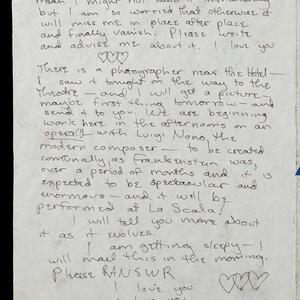 but I am so worried that otherwise it
will miss me in place after place
and finally vanish. Please write
and advise me about it. I love you
There is a photographer near the Hotel—
I saw it tonight on the way to the
Theatre— and I will get a picture—
maybe first thing tomorrow— and
send it to you. We are beginning
work here in the afternoons on an
opera(!) with Luigi Nono, the
modern composer— to be created
continually, as Frankenstein was,
over a period of months and it is
expected to be spectacular and
enormous— and it will be
performed at La Scala!
I will tell you more about
it as it evolves.
I am getting sleepy— I
will mail this in the morning.
Please RANSWR
I love you